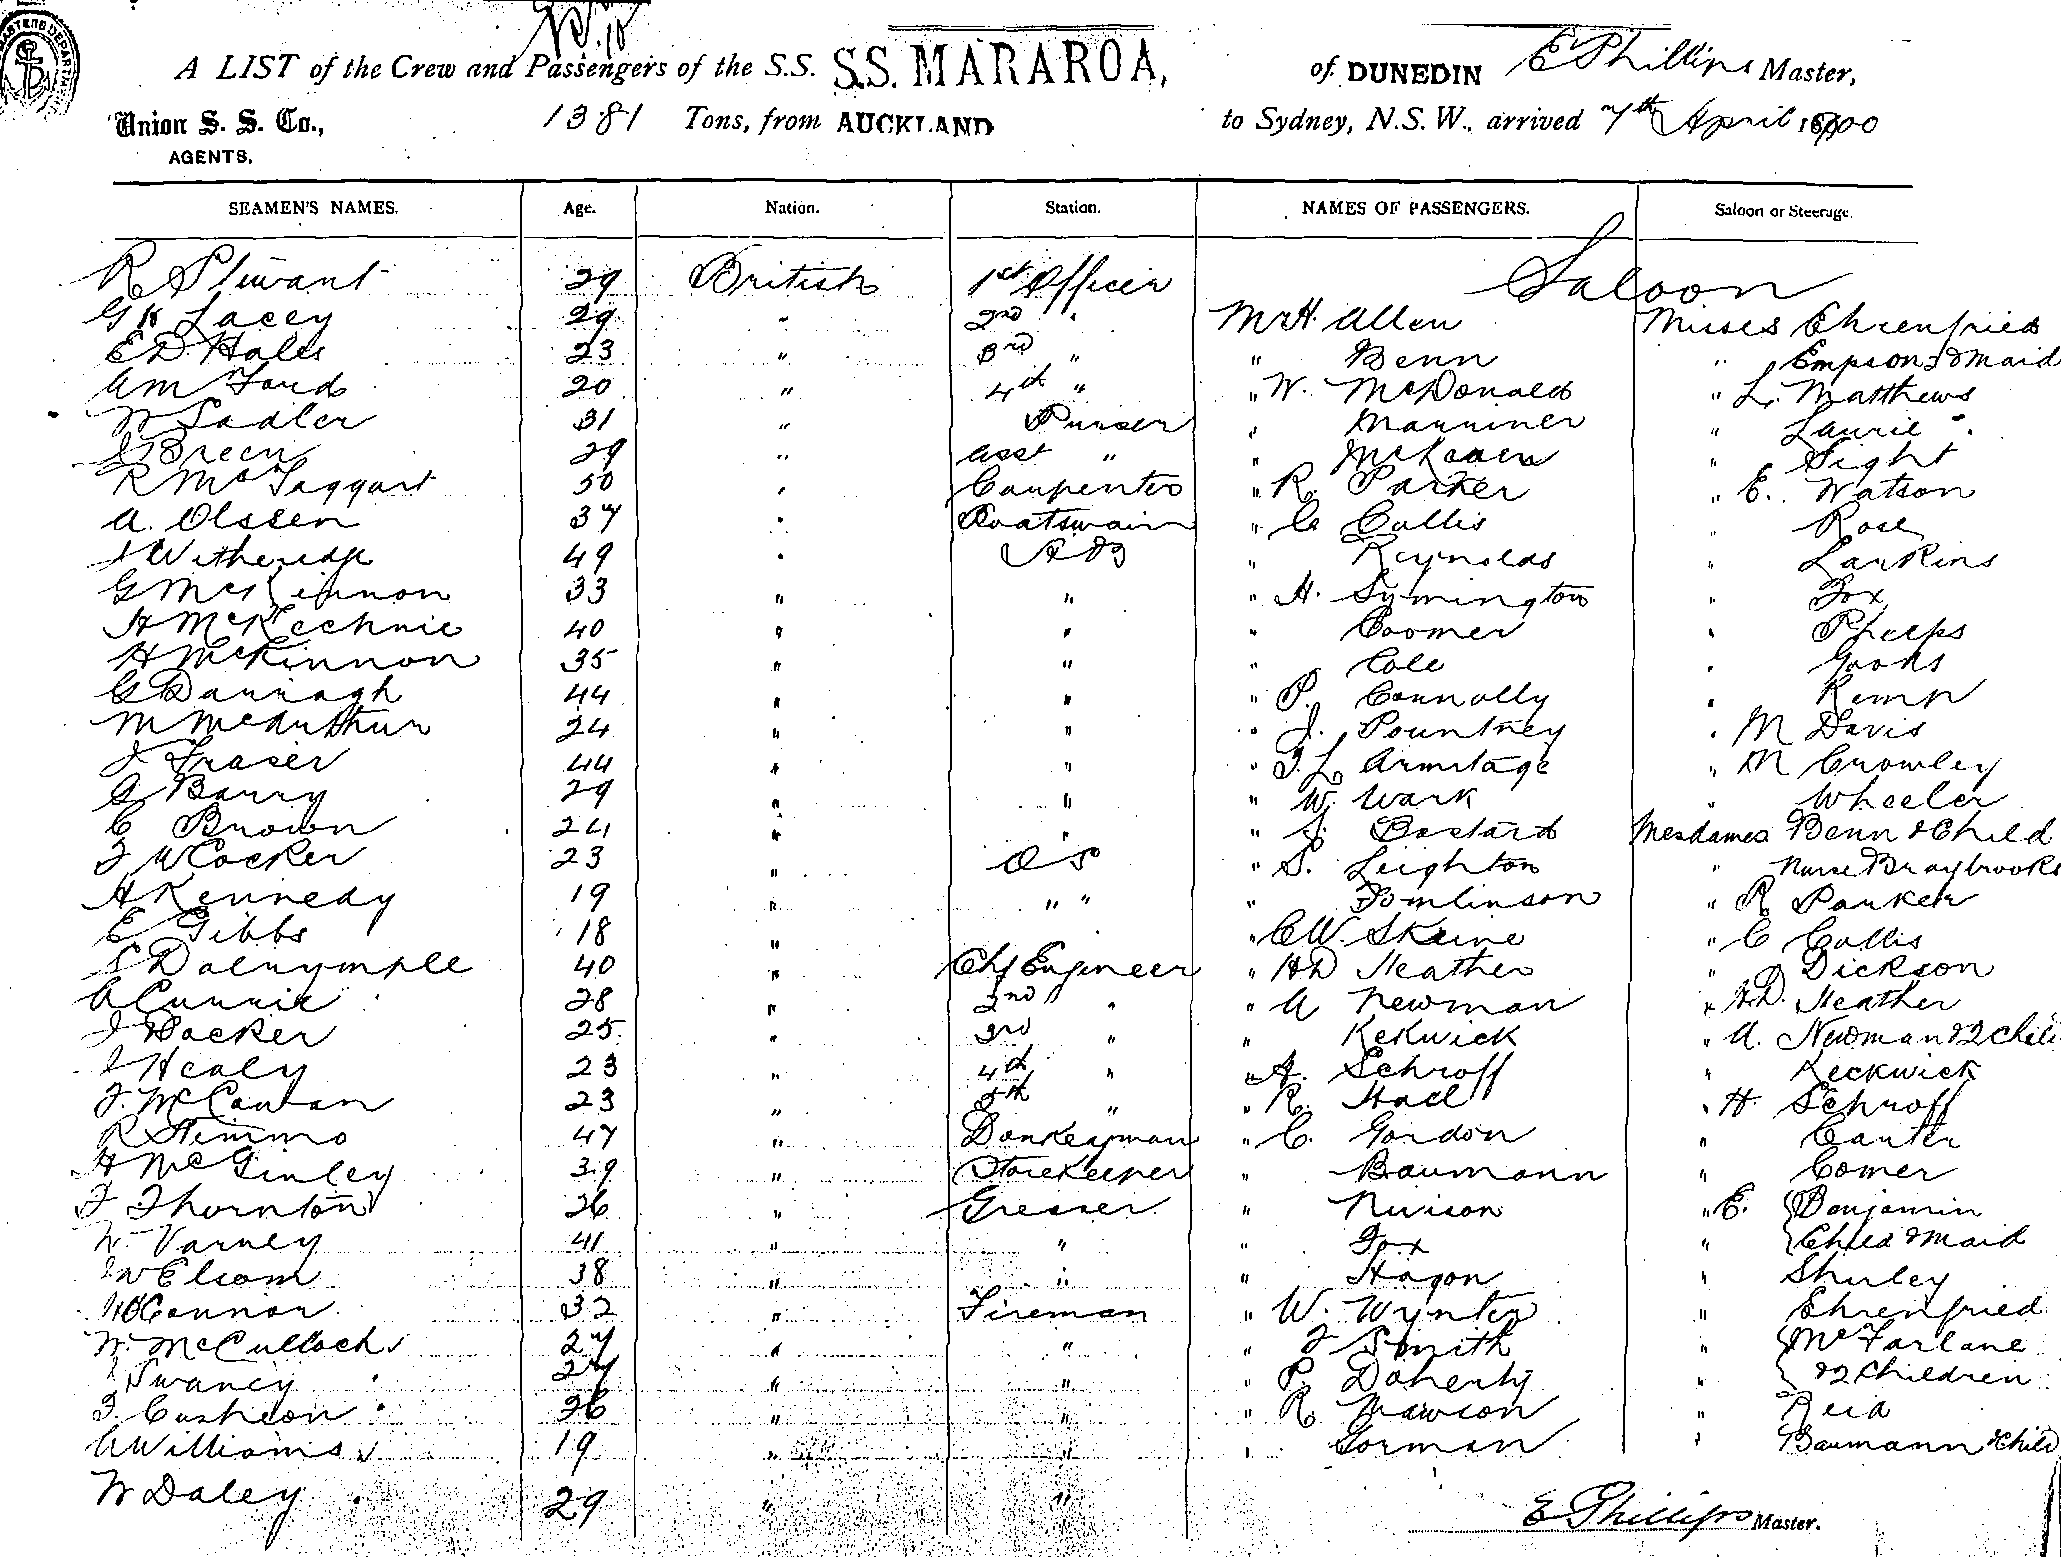 A LIST of the Crew and Passengers of the S.S. S.S. MARAROA, of DUNEDIN E Phillips Master,
Union S. S. Co., 1381 Tons, from AUCKLAND to Sydney, N.S.W., arrived 7th April 1900
AGENTS.
SEAMEN'S NAMES. Age. Nation. Station. NAMES OF PASSENGERS. Saloon or Steerage.
R Stewart 29 British 1st Officer Saloon
G H Lacey 29 " 2nd " Mr H. Allen Misses Ehrenfried
E D Hales 23 " 3rd " " Benn " Empson & maid
A M Ford 20 " 4th " " W. McDonald " L. Matthews
W Sadler 31 " Purser " Marriner " Laurie
J Breen 29 " Asst " " " Sight
R McTaggart 50 " Carpenter " R. Parker " E. Watson
A. Olssen 37 " Boatswain " C Collis " Rose
J Witheridge 49 " A B " Reynolds " Larkins
G McKinnon 33 " " " H. Symington " Fox
H McKechnie 40 " " " Coomer " Phelps
H McKinnon 35 " " " Cole "
G Darragh 44 " " " P. Connolly " Kemp
M McArthur 24 " " " J. Pountney " M Davis
J Fraser 44 " " " F. L. Armitage " M Crowley
G Barry 29 " " " W. Wark " Wheeler
C Brown 24 " " " J. Bastard Mesdames Benn & Child
J W Cocker 23 " O S " S. Leighton " Nurse Braybrooks
H Kennedy 19 " " " " Tomlinson " R Parker
E Gibbs 18 " " C W. Skeine " C Collis
S Dalrymple 40 " Chf Engineer " H D Heather " Dickson
A Currie 28 " 2nd " " A Newman " H D. Heather
J Docker 25 " 3rd " " Kekwick " A. Newman & 2 Chil
J Healy 23 " 4th " " A. Schroff " Keckwick
J. McCowan 23 " 5th " " R. Hall " H. Schroff
R Nimmo 47 " Donkeyman " C. Gordon " Carter
H McGinley 39 " Storekeeper " Baumann " Comer
J Thornton 26 " Greaser " " E. Benjamin
W Varney 41 " " " Fox " Child & maid
J W Elsom 38 " " " Hagon " Shirley
W O'Connor 32 " Fireman " W. Wynter " Ehrenfried
W. McCulloch 27 " " " J Smith " McFarlane
J Swaney 27 " " " P. Doherty & 2 Children
J. Cusheon 26 " " " R. Mawson " Reid
A Williams 19 " " " Gorman " Baumann & Child
W Daley 29 " "
E Phillips Master.